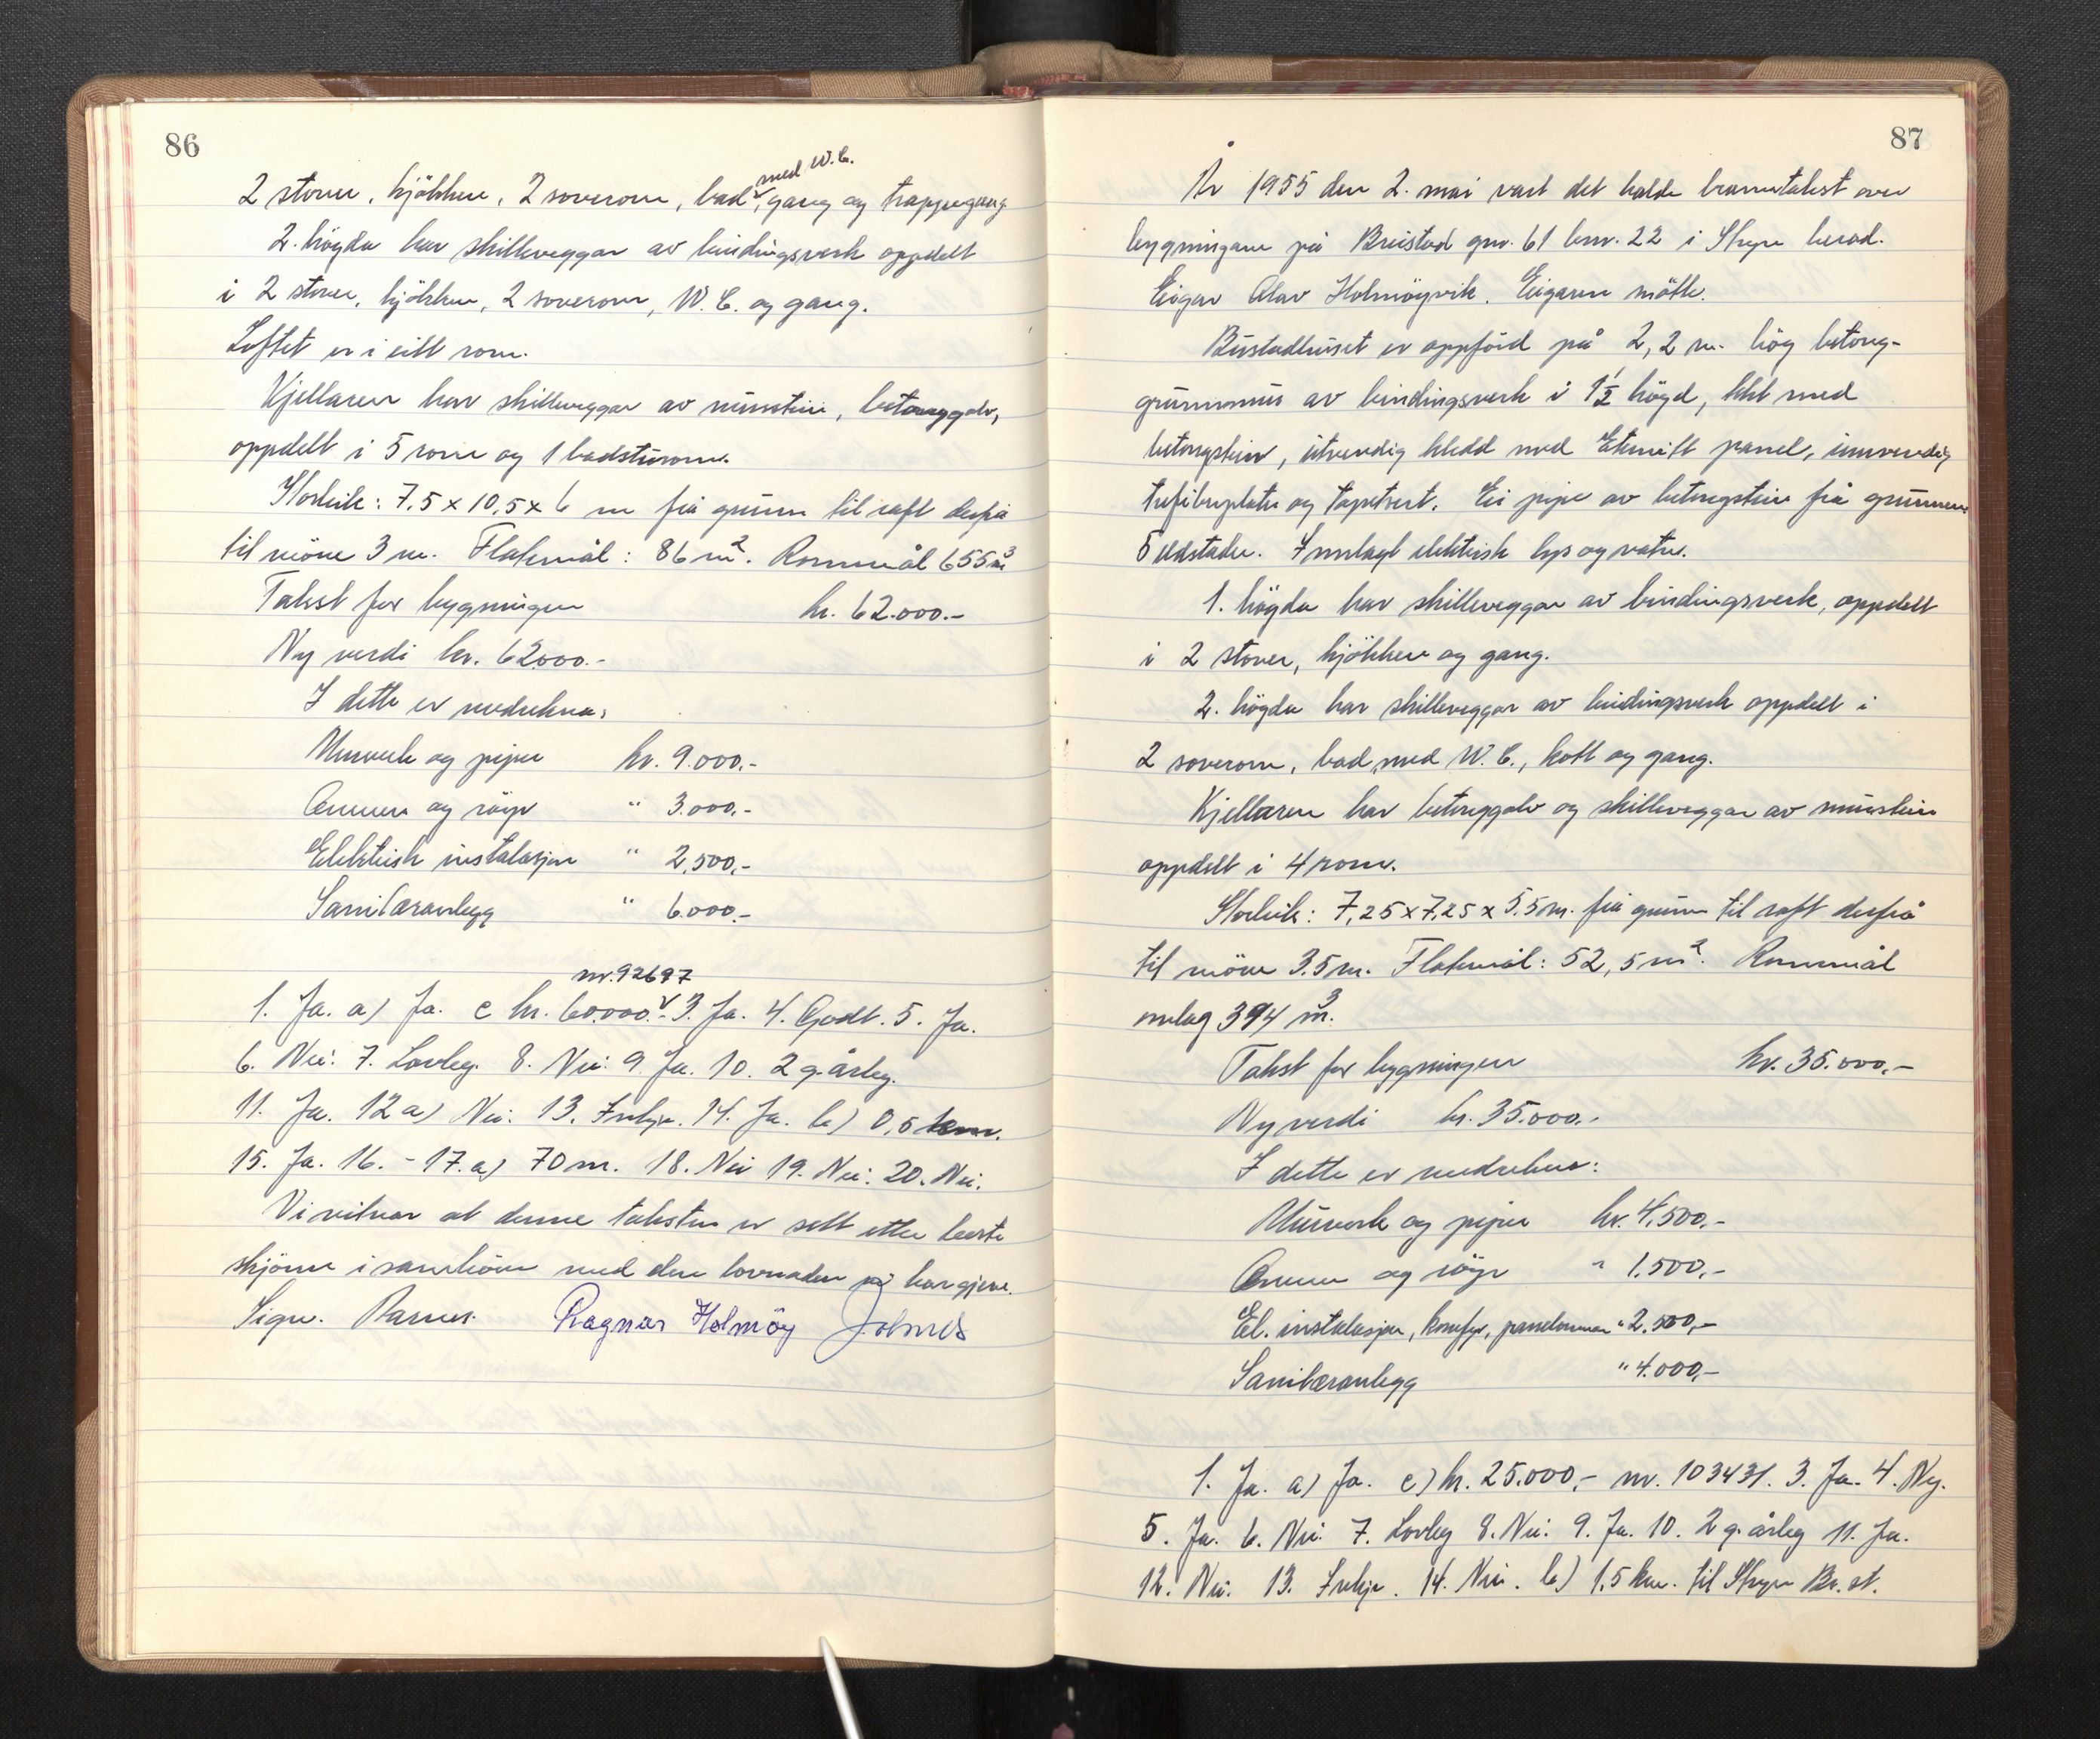 86
2 stover, kjökken, 2 soverom, bad, med W.C. gang og trappegang
2. högda har skilleveggar av bindingsverk oppdelt
i 2 stover, kjökken, 2 soverom, W.C. og gang.
Loftet er i eitt rom.
Kjellaren har skilleveggar av murstein, betonggolv,
oppdelt i 5 rom og 1 badsturom.
Storleik: 7,5 x 10,5 x 6 m frå grunn til raft derfrå
til möne 3 m. Flatemål: 86 m². Rommål 655 m³
Takst for bygningen kr. 62.000.-
Ny verdi kr. 62000.-
I dette er medrekna:
Murverk og piper kr. 9.000.-
Omnar og röyr " 3.000,-
Elektrisk instalasjon " 2,500,-
Sanitæranlegg " 6.000.-
nr. 92697
1. Ja. a) Ja. c kr. 60.000.- 3. Ja. 4. Godt. 5. Ja.
6. Nei. 7. Lovleg. 8. Nei. 9. Ja. 10. 2 g. årleg.
11. Ja. 12 a) Nei. 13. Innkjn. 14. Ja. b) 0,5 km.
15. Ja. 16. - 17. a) 70 m. 18. Nei 19. Nei. 20. Nei.
Vi vitnar at denne taksten er sett etter beste
skjönn i samhöve med den lovnaden vi har gjeve.
Sign. Ragnar Holmöy
87
År 1955 den 2. mai vart det halde branntakst over
bygningane på Breistad gnr. 61 bnr. 22 i Stryn herad.
Eigar Olav Holmöyvik. Eigaren mötte.
Bustadhuset er oppförd på 2,2 m. hög betong-
grunnmur av bindingsverk i 1½ högd, tekt med
betongstein, utvendig kledd med Eternitt panel, innvendig
trefiberplater og tapetsert. Ei pipe av betongstein frå grunnen.
5 eldstader. Innlagt elektrisk lys og vatn.
1. högda har skilleveggar av bindingsverk, oppdelt
i 2 stover, kjökken og gang.
2. högda har skilleveggar av bindingsverk oppdelt i
2 soverom, bad med W.C., kott og gang.
Kjellaren har betonggolv og skilleveggar av murstein
oppdelt i 4 rom.
Storleik: 7,25 x 7,25 x 5.5 m. frå grunn til raft derfrå
til möne 3.5 m. Flatemål: 52,5 m². Rommål
omlag 394 m³.
Takst for bygningen kr. 35.000,-
Ny verdi kr. 35.000.-
I dette er medrekna:
Murverk og piper kr. 4,500.-
Omnar og röyr " 1.500,-
El. instalasjon, komfyr, panelomnar " 2.500,-
Sanitæranlegg " 4.000,-
1. Ja. a) Ja. c) kr. 25.000,- nr. 103431. 3. Ja. 4. Ny.
5. Ja. 6. Nei. 7. Lovleg 8. Nei. 9. Ja. 10. 2 g. årleg 11. Ja.
12. Nei. 13. Innkjn. 14. Nei. b) 1,5 km. til Stryn Br. st.